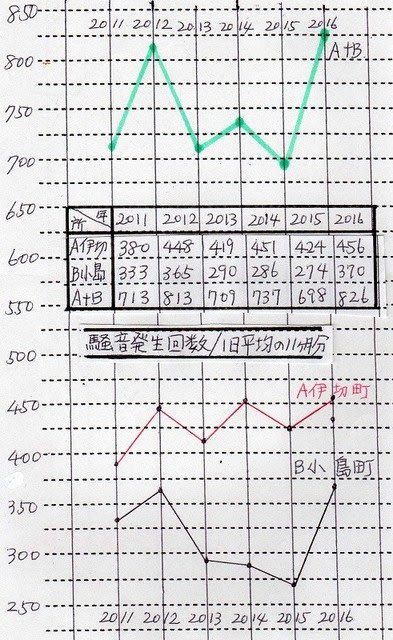 850
2011 2012 2013 2014 2015 2016
A+B
800
750
700
650
所 年 2011 2012 2013 2014 2015 2016
A伊切 380 448 419 451 424 456
600
B小島 333 365 290 286 274 370
A+B 713 813 709 737 698 826
550
騒音発生回数/1日平均の11ヶ月分
500
A伊切町
450
400
B小島町
350
300
250
2011 2012 2013 2014 2015 2016